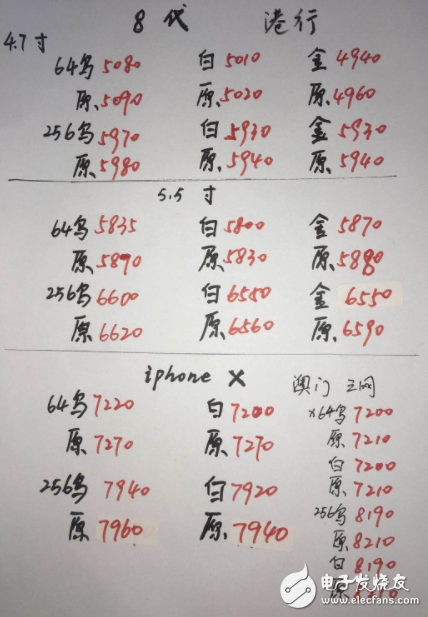 8代 港行
4.7寸
64乌5080 白5010 金4940
原5090 原5020 原4960
256乌5970 白5930 金5930
原5980 原5940 原5940
5.5寸
64乌5835 白5800 金5870
原5890 原5830 原5880
256乌6600 白6550 金6550
原6620 原6560 原6590
iphone X 澳门 三网
64乌7220 白7200 X64乌7200
原7270 原7270 原7210
白7200
256乌7940 白7920 原7210
256乌8190
原7960 原7940 原8210
白8190
原
电子发烧友
www.elecfans.com